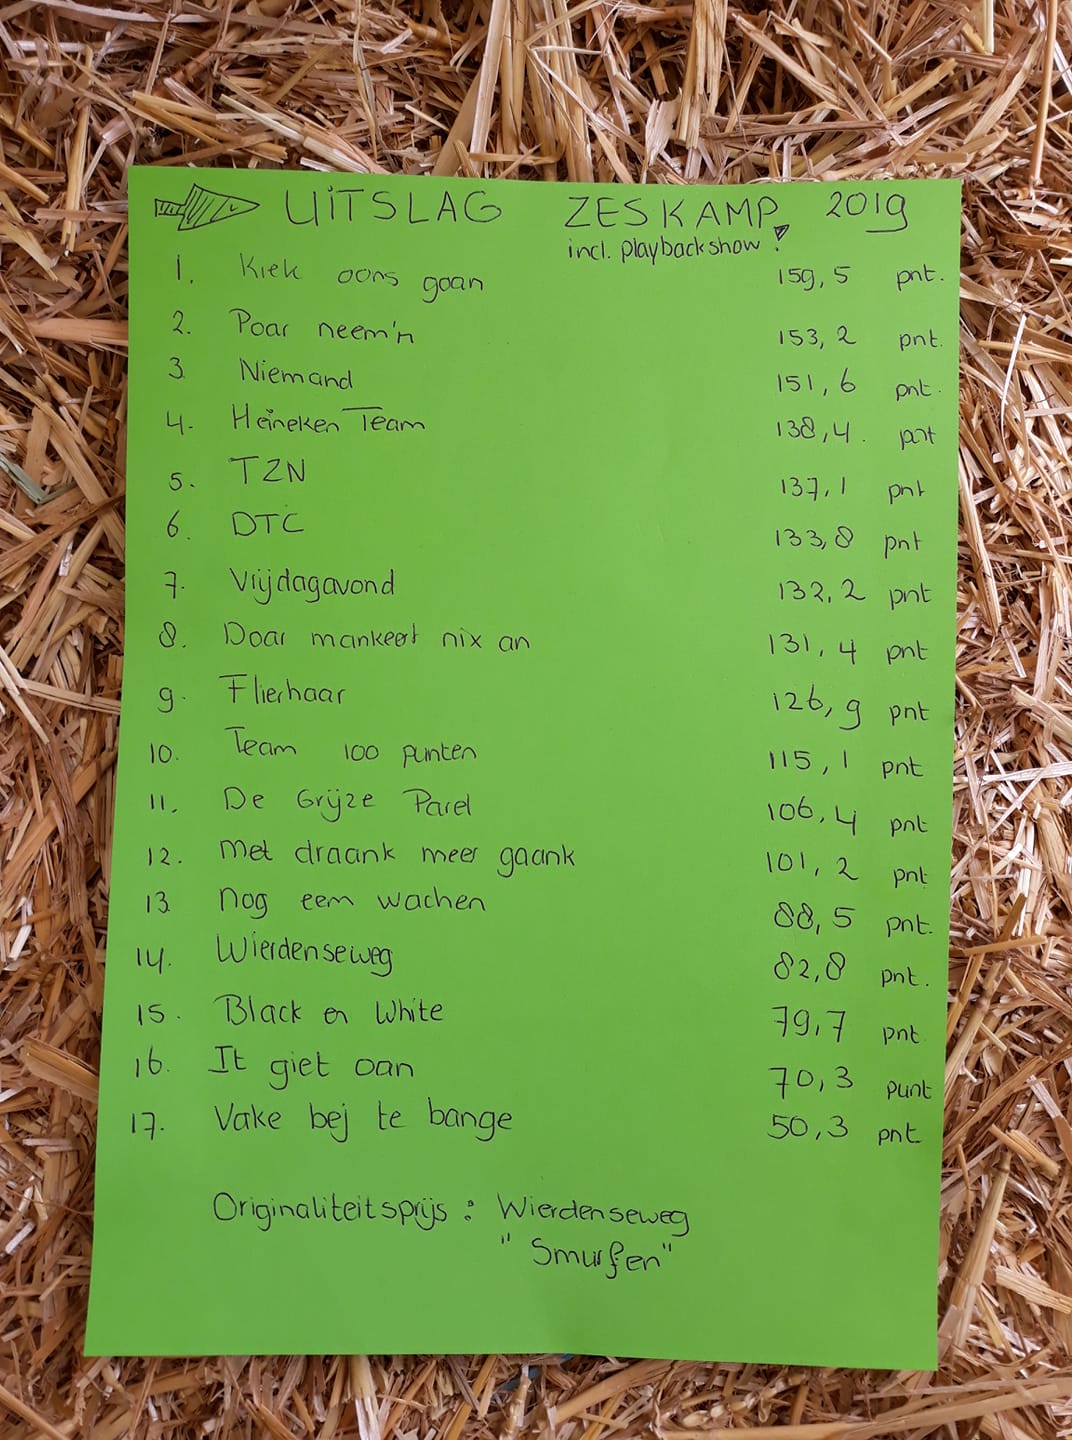 UITSLAG ZESKAMP 2019
incl. playbackshow!
1. Kiek oons goan 159,5 pnt.
2. Poar neem'n 153,2 pnt.
3 Niemand 151,6 pnt.
4. Heineken Team 138,4. pnt
5. TZN 137,1 pnt
6. DTC 133,8 pnt
7. Vrijdagavond 132,2 pnt
8. Doar mankeert nix an 131,4 pnt
9. Flierhaar 126,9 pnt
10. Team 100 punten 115,1 pnt
11. De Grijze Parel 106,4 pnt
12. Met draank meer gaank 101,2 pnt
13 Nog eem wachen 88,5 pnt.
14. Wierdenseweg 82,8 pnt.
15. Black en White 79,7 pnt
16. It giet oan 70,3 punt
17. Vake bej te bange 50,3 pnt
Originaliteitsprijs: Wierdenseweg
"Smurfen"